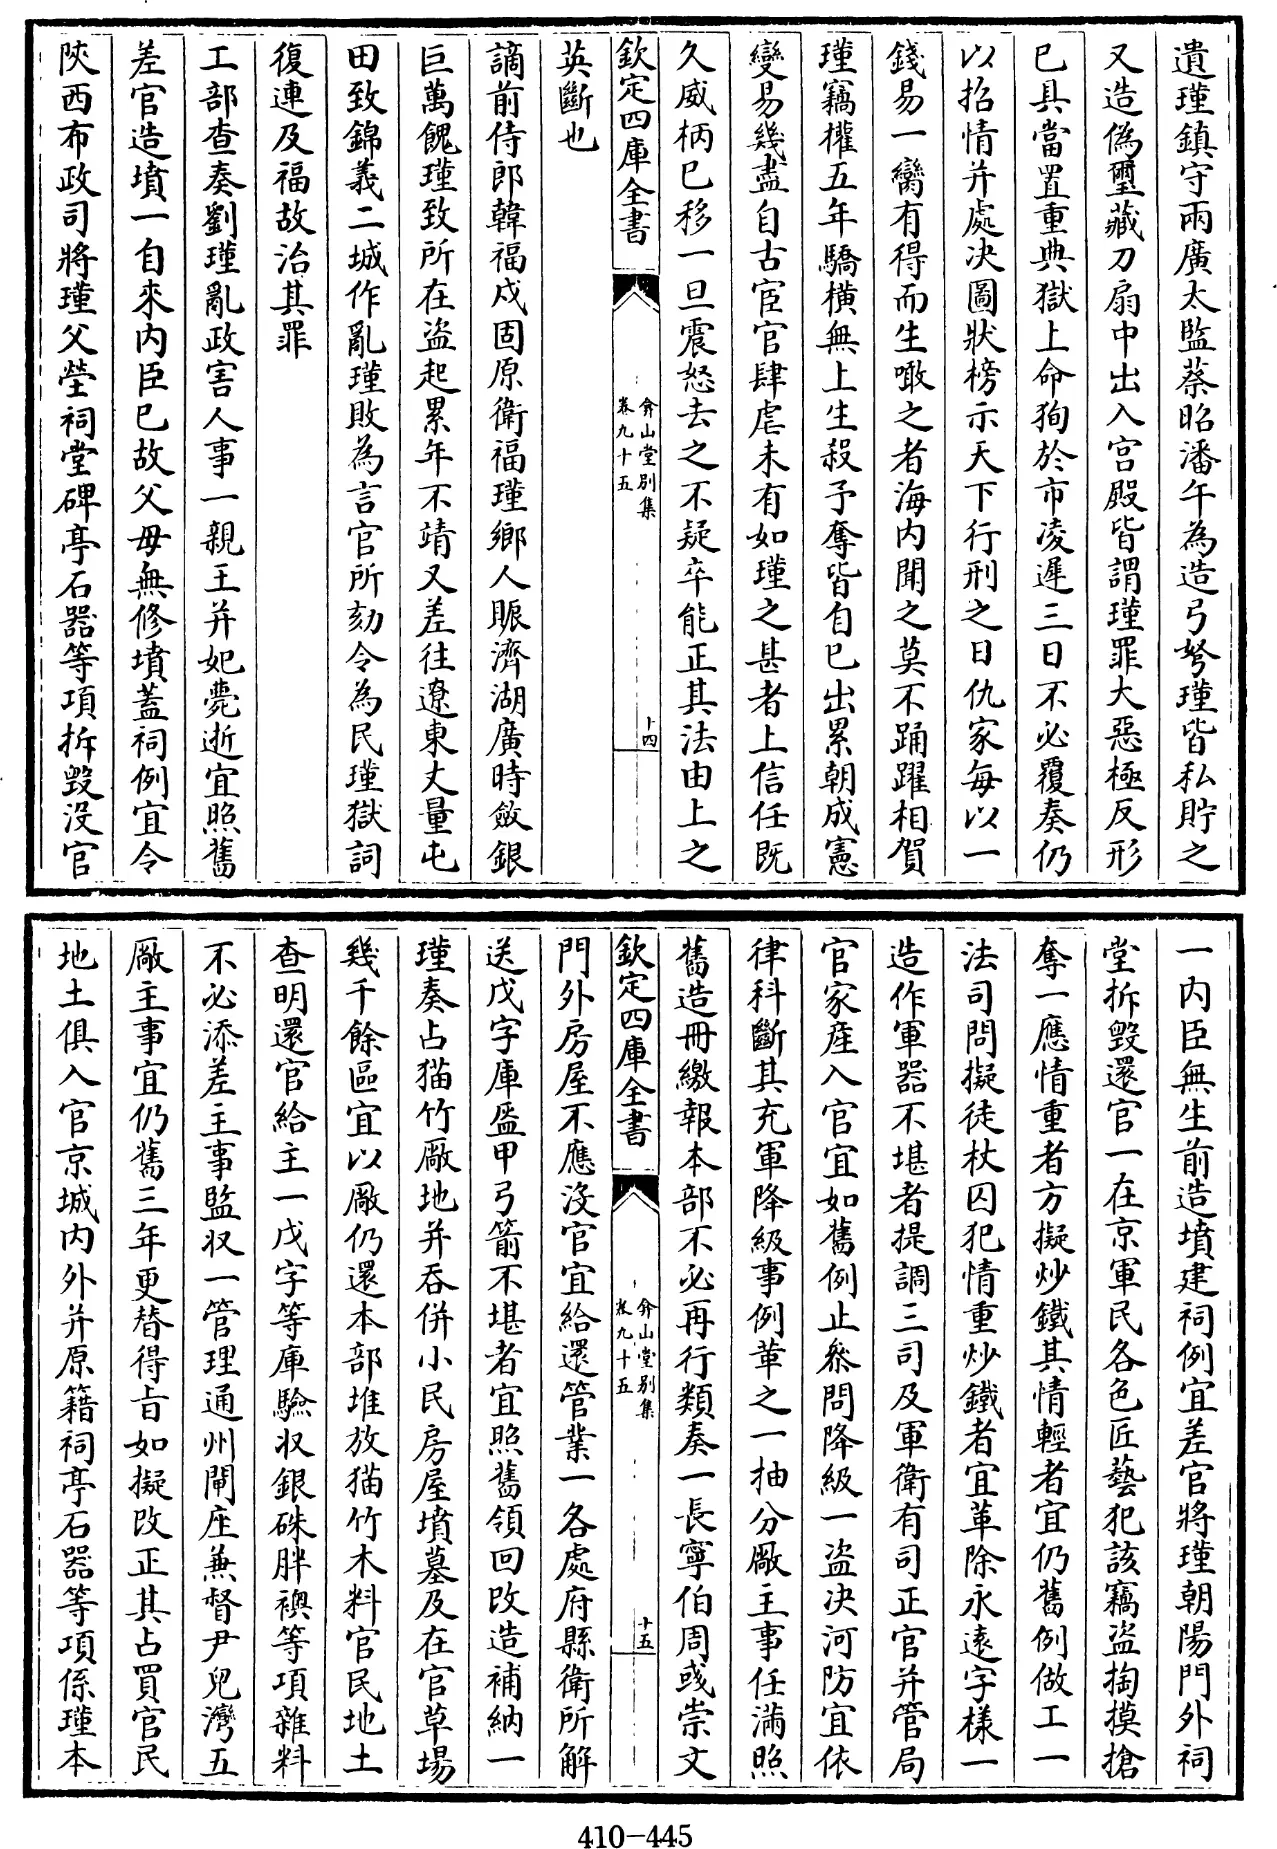 遺瑾鎮守兩廣太監蔡昭潘午為造弓弩瑾皆私貯之
又造偽璽藏刀扇中出入宫殿皆謂瑾罪大惡極反形
已具當置重典獄上命狥於市凌遲三日不必覆奏仍
以招情并處决圖狀榜示天下行刑之日仇家每以一
錢易一臠有得而生噉之者海内聞之莫不踊躍相賀
瑾竊權五年驕横無上生殺予奪皆自已出累朝成憲
變易幾盡自古宦官肆虐未有如瑾之甚者上信任既
久威柄已移一旦震怒去之不疑卒能正其法由上之
欽定四庫全書
弇山堂别集
卷九十五
十四
英斷也
謫前侍郎韓福戍固原衛福瑾鄉人賑濟湖廣時斂銀
巨萬餽瑾致所在盗起累年不靖又差往遼東丈量屯
田致錦義二城作亂瑾敗為言官所劾令為民瑾獄詞
復連及福故治其罪
工部查奏劉瑾亂政害人事一親王并妃薨逝宜照舊
差官造墳一自來内臣已故父母無修墳蓋祠例宜令
陜西布政司將瑾父塋祠堂碑亭石器等項拆毁没官
一内臣無生前造墳建祠例宜差官將瑾朝陽門外祠
堂拆毁還官一在京軍民各色匠藝犯該竊盗掏摸搶
奪一應情重者方擬炒鐵其情輕者宜仍舊例做工一
法司問擬徒杖囚犯情重炒鐵者宜革除永遠字樣一
造作軍器不堪者提調三司及軍衛有司正官并管局
官家産入官宜如舊例止叅問降級一盗决河防宜依
律科斷其充軍降級事例革之一抽分厰主事任滿照
舊造冊繳報本部不必再行類奏一長寧伯周彧崇文
欽定四庫全書
弇山堂别集
卷九十五
十五
門外房屋不應没官宜給還管業一各處府縣衛所解
送戊字庫盔甲弓箭不堪者宜照舊領回改造補納一
瑾奏占猫竹厰地并吞併小民房屋墳墓及在官草場
幾千餘區宜以厰仍還本部堆放猫竹木料官民地土
查明還官給主一戊字等庫驗收銀硃胖襖等項雜料
不必添差主事監收一管理通州閘座兼督尹兒灣五
厰主事宜仍舊三年更替得㫖如擬改正其占買官民
地土俱入官京城内外并原籍祠亭石器等項係瑾本
410-445